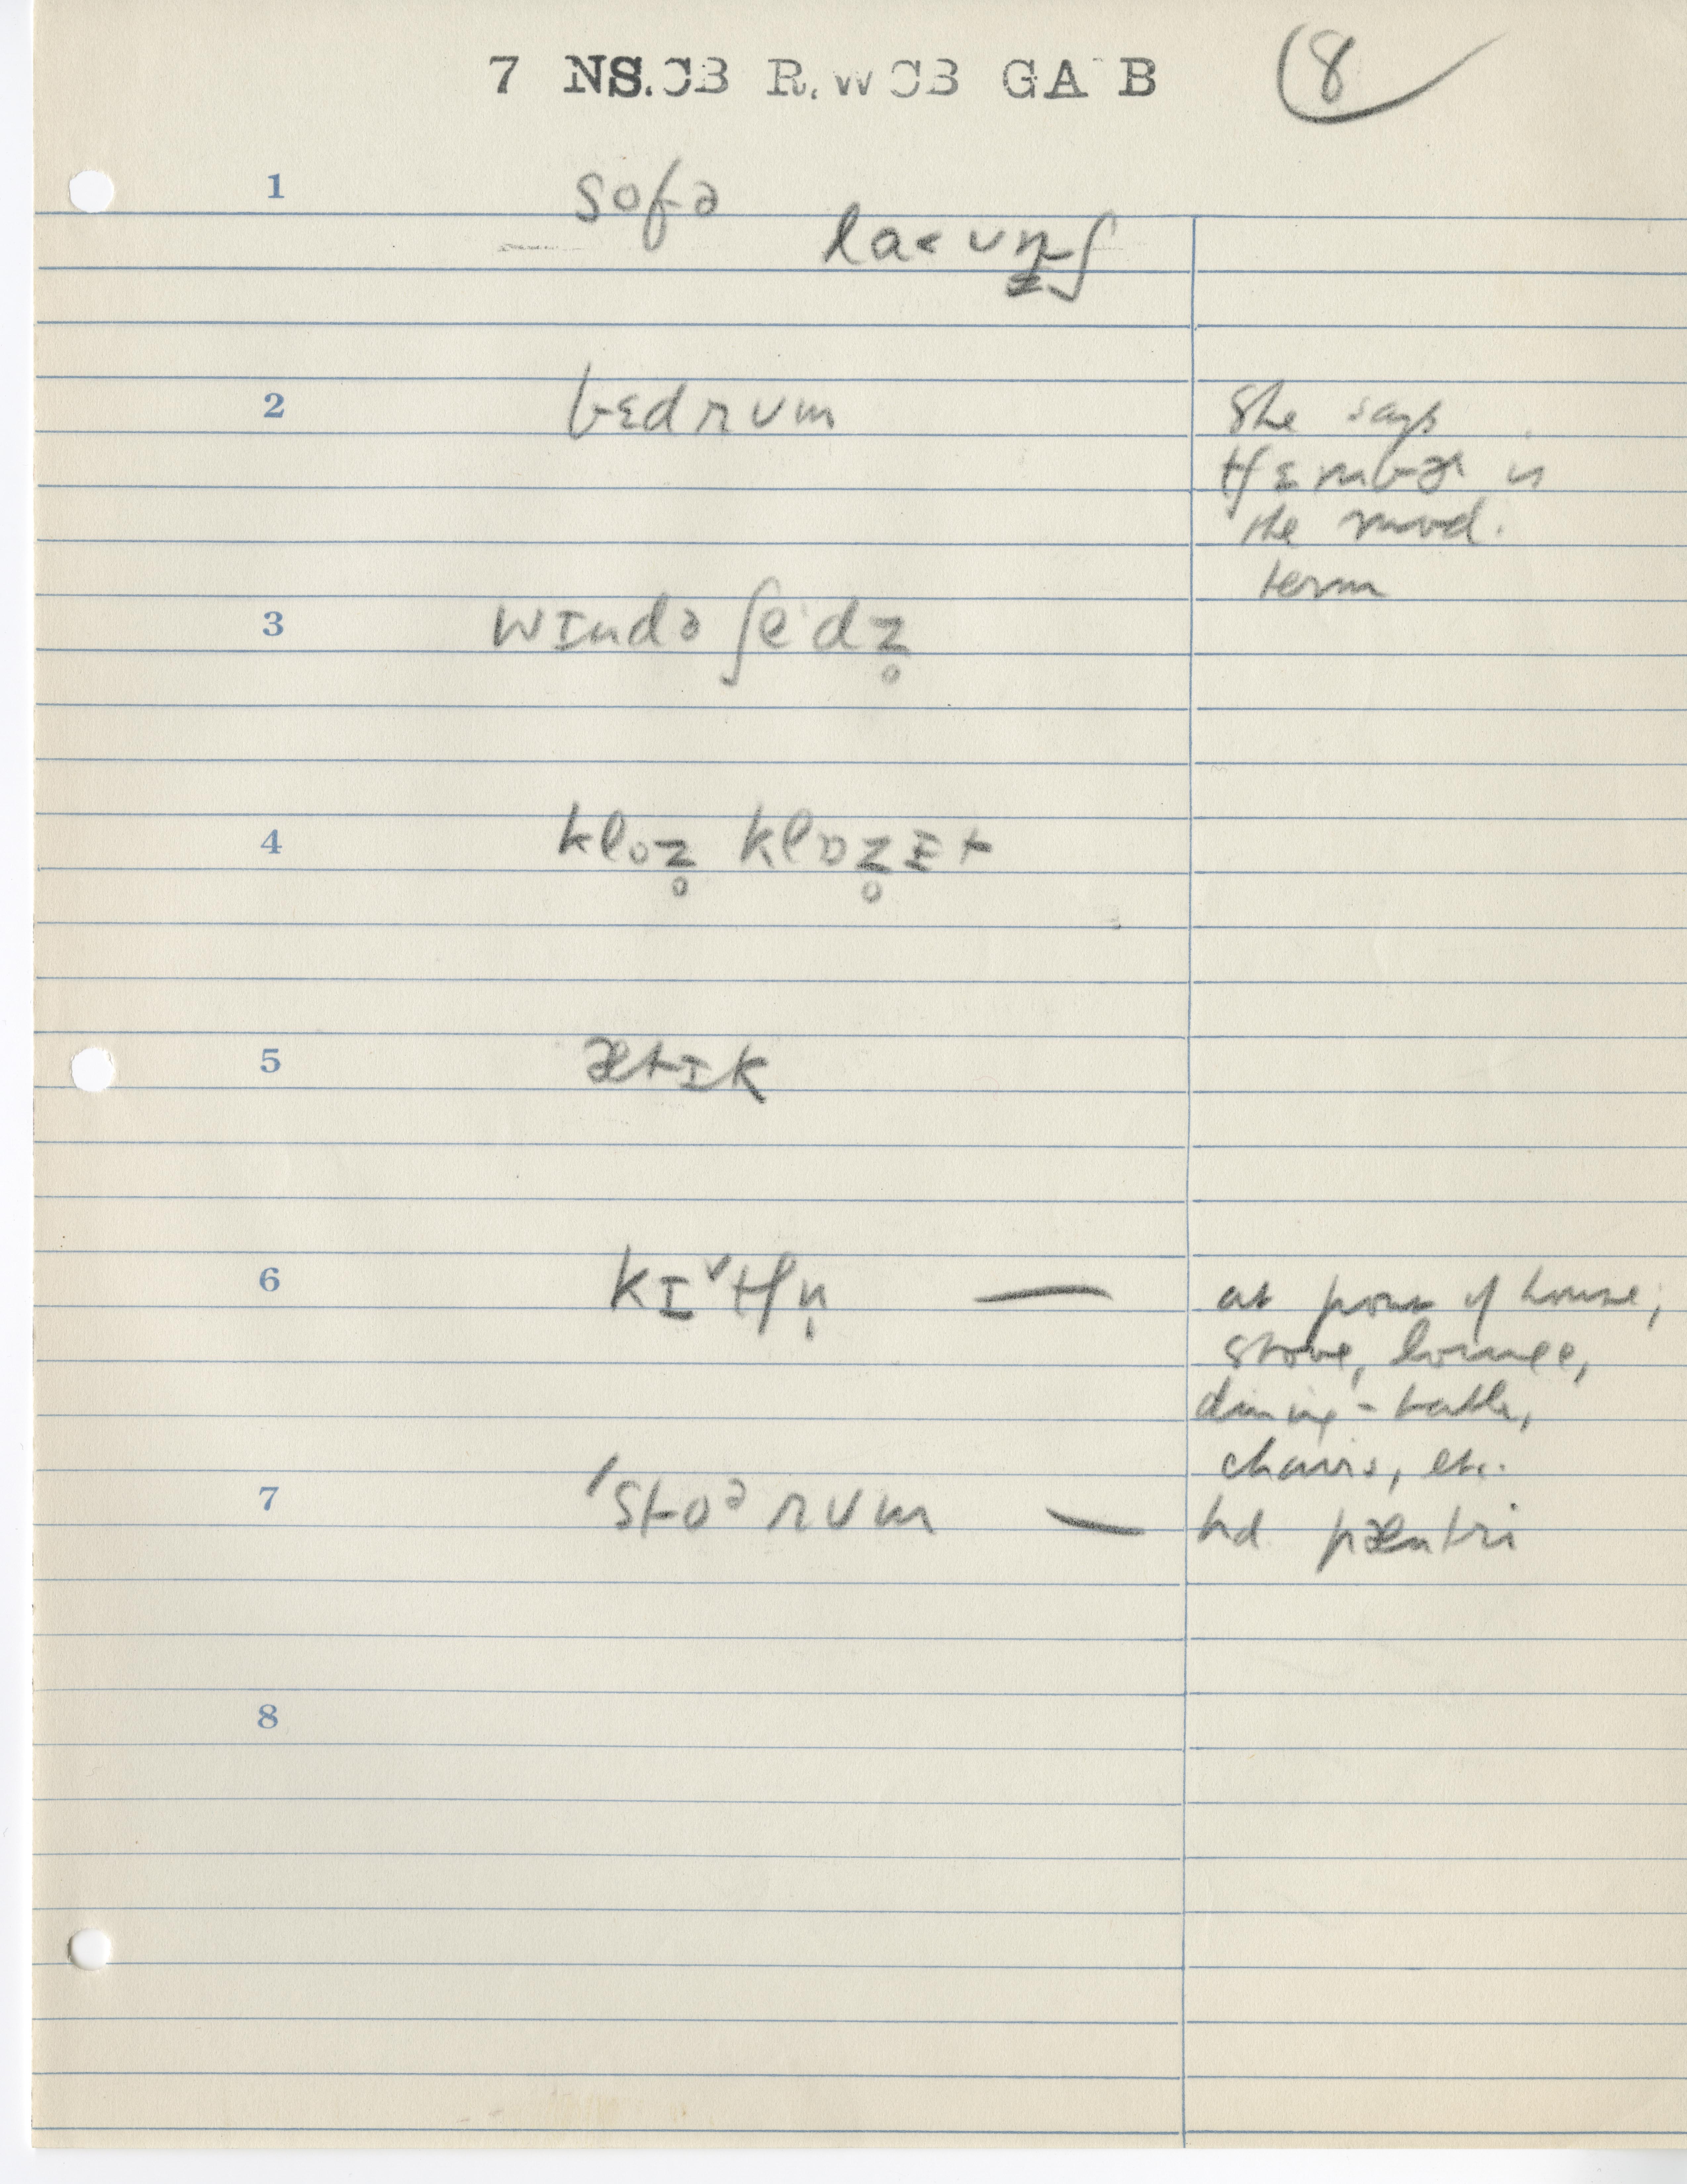 7 NS.CB R.WCB GA B 8
1 sofə
la˂ʊnʃ
2 bɛdrʊm She says
tʃɛmbɚ is
the mod.
term
3 wɪndə ʃedz̥
4 kloz̥ klɒz̥ɪt
5 ætɪk
6 kɪˇtʃn̩ — at front of house;
stove, lounge,
dining-table,
chairs, etc.
7 ˈstoᵊrʊm — pæntri
8